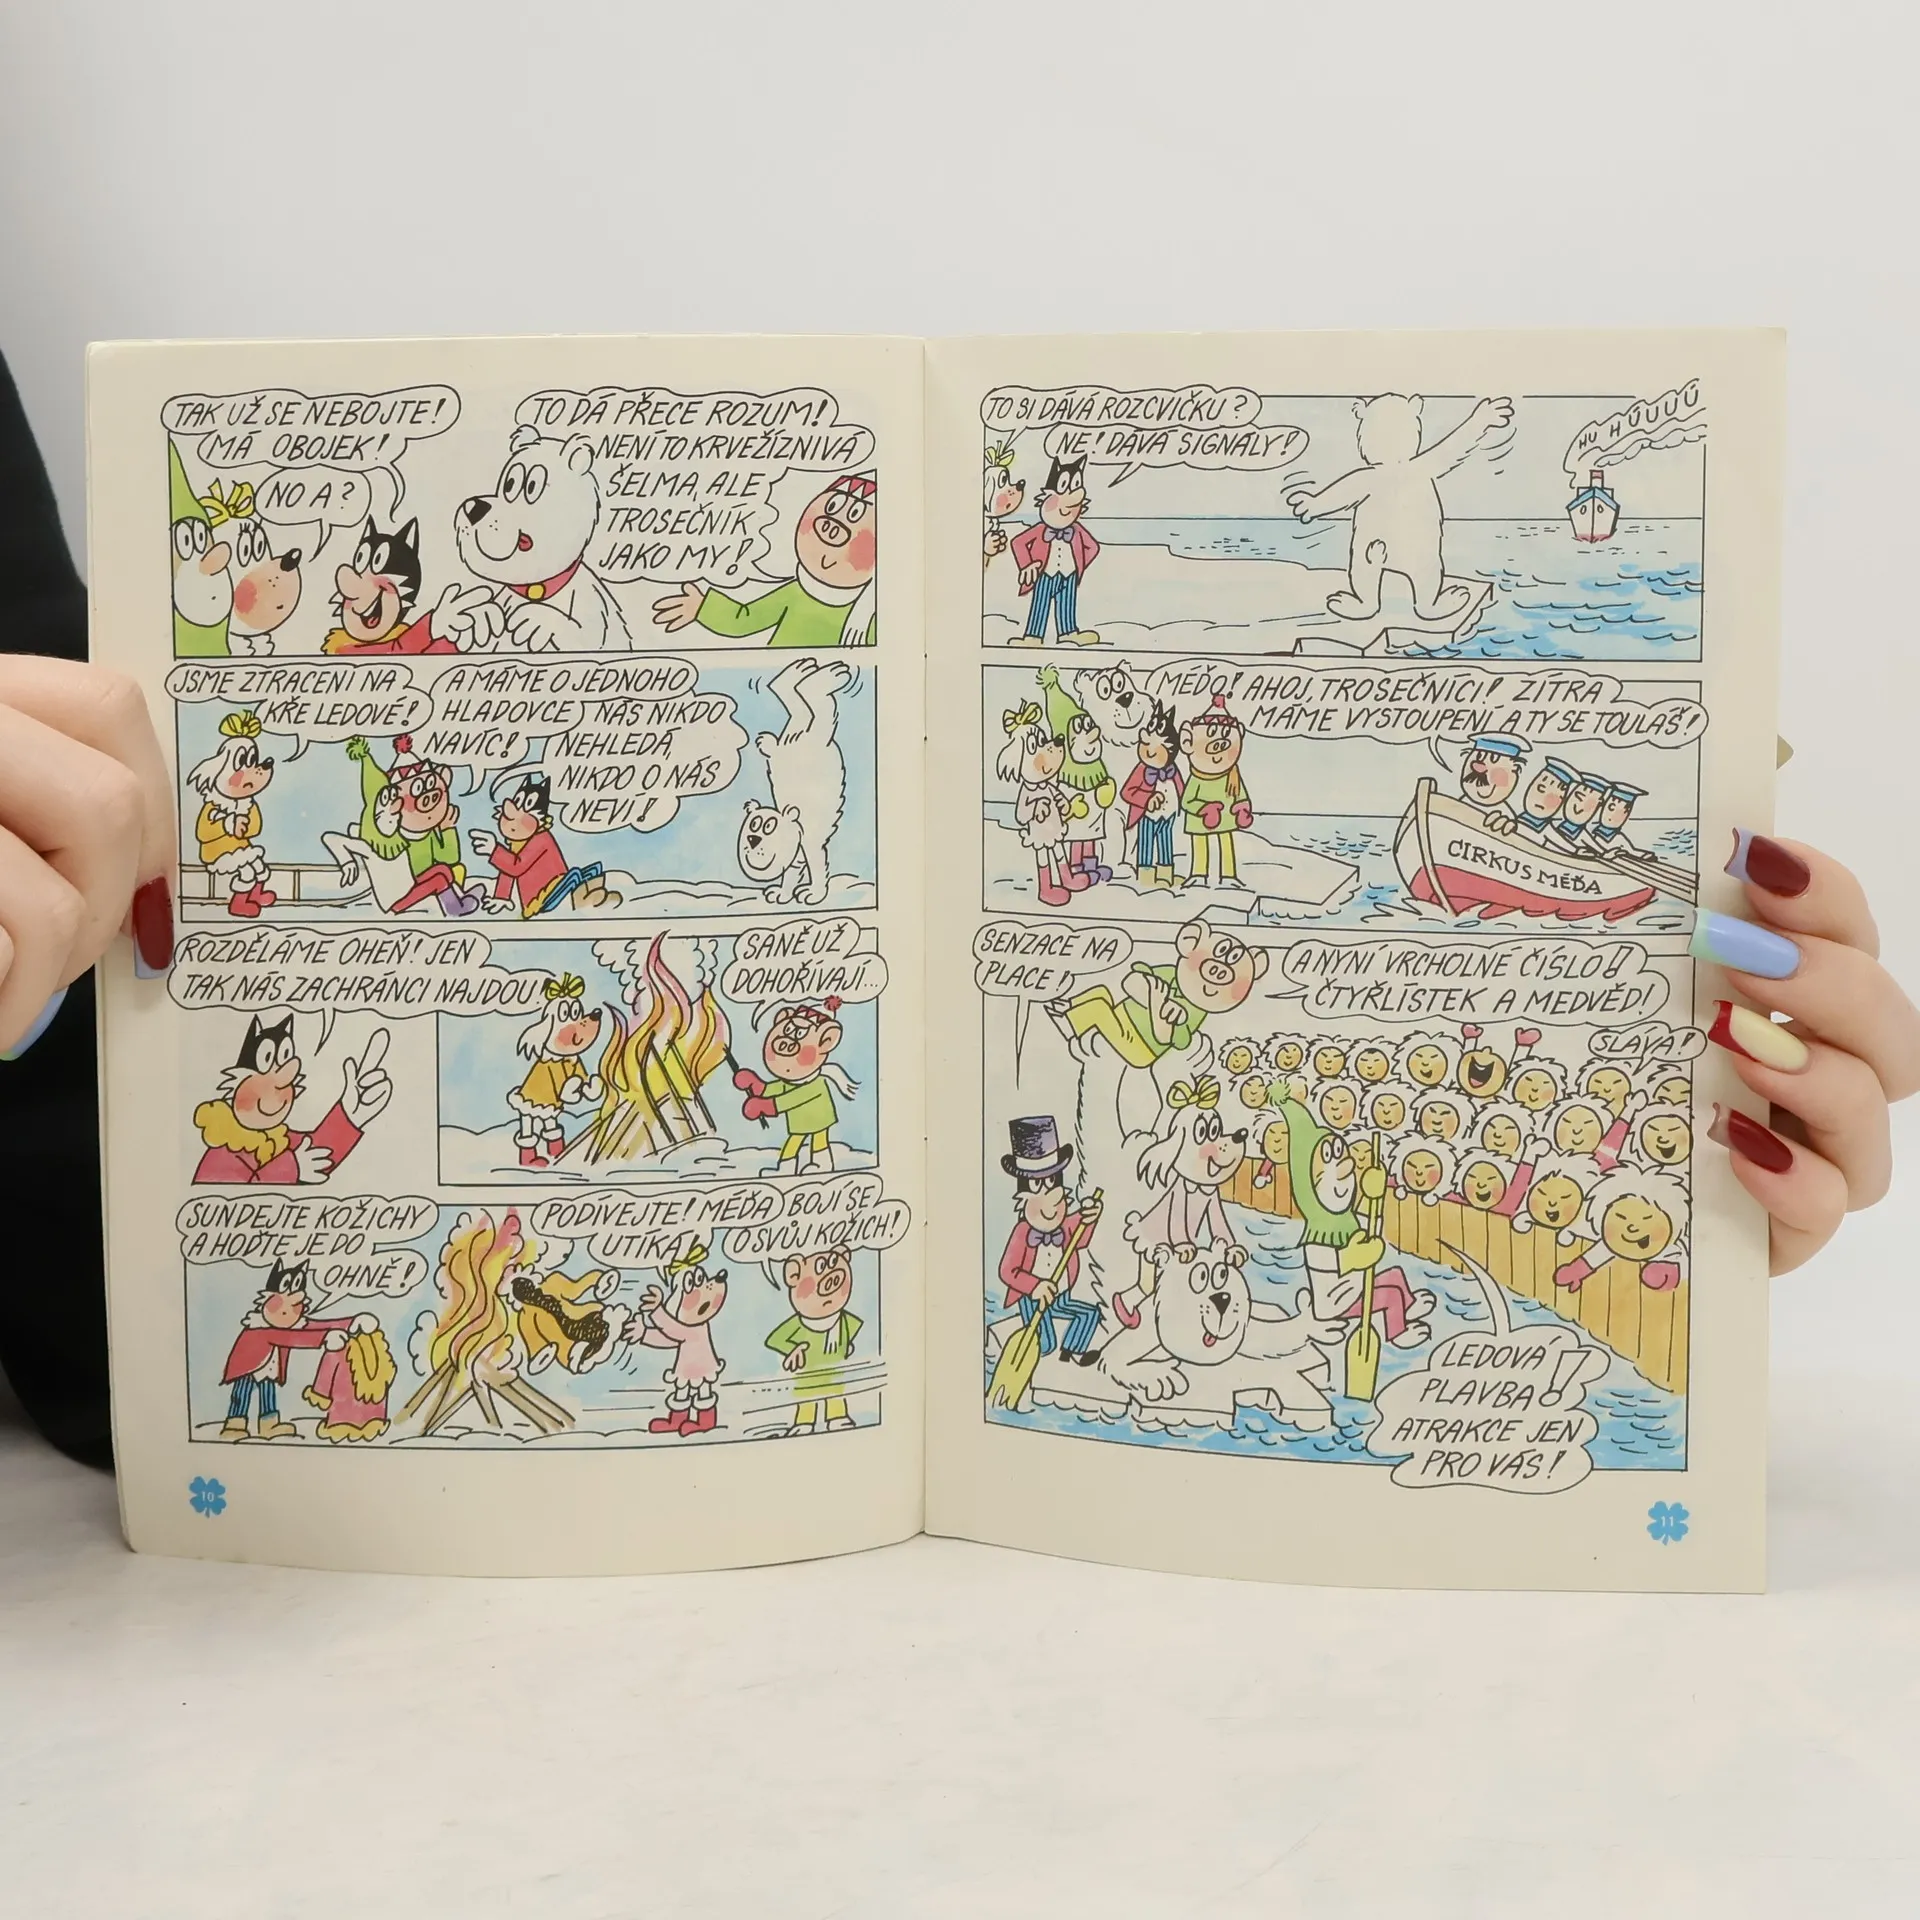 TAK UŽ SE NEBOJTE!
MÁ OBOJEK!
NO A?
TO DÁ PŘECE ROZUM!
NENÍ TO KRVEŽÍZNIVÁ
ŠELMA, ALE
TROSEČNÍK
JAKO MY!
JSME ZTRACENI NA
KŘE LEDOVÉ!
A MÁME O JEDNOHO
HLADOVCE
NAVÍC!
NÁS NIKDO
NEHLEDÁ,
NIKDO O NÁS
NEVÍ!
ROZDĚLÁME OHEŇ! JEN
TAK NÁS ZACHRÁNCI NAJDOU!
SANĚ UŽ
DOHOŘÍVAJÍ...
SUNDEJTE KOŽICHY
A HOĎTE JE DO
OHNĚ!
PODÍVEJTE! MÉĎA
UTÍKÁ!
BOJÍ SE
O SVŮJ KOŽICH!
10
TO SI DÁVÁ ROZCVIČKU?
NE! DÁVÁ SIGNÁLY!
HU HÚUUÚ
MÉĎO! AHOJ, TROSEČNÍCI! ZÍTRA
MÁME VYSTOUPENÍ A TY SE TOULÁŠ!
CIRKUS MÉĎA
SENZACE NA
PLACE!
A NYNÍ VRCHOLNÉ ČÍSLO!
ČTYŘLÍSTEK A MEDVĚD!
SLÁVA!
LEDOVÁ
PLAVBA!
ATRAKCE JEN
PRO VÁS!
11